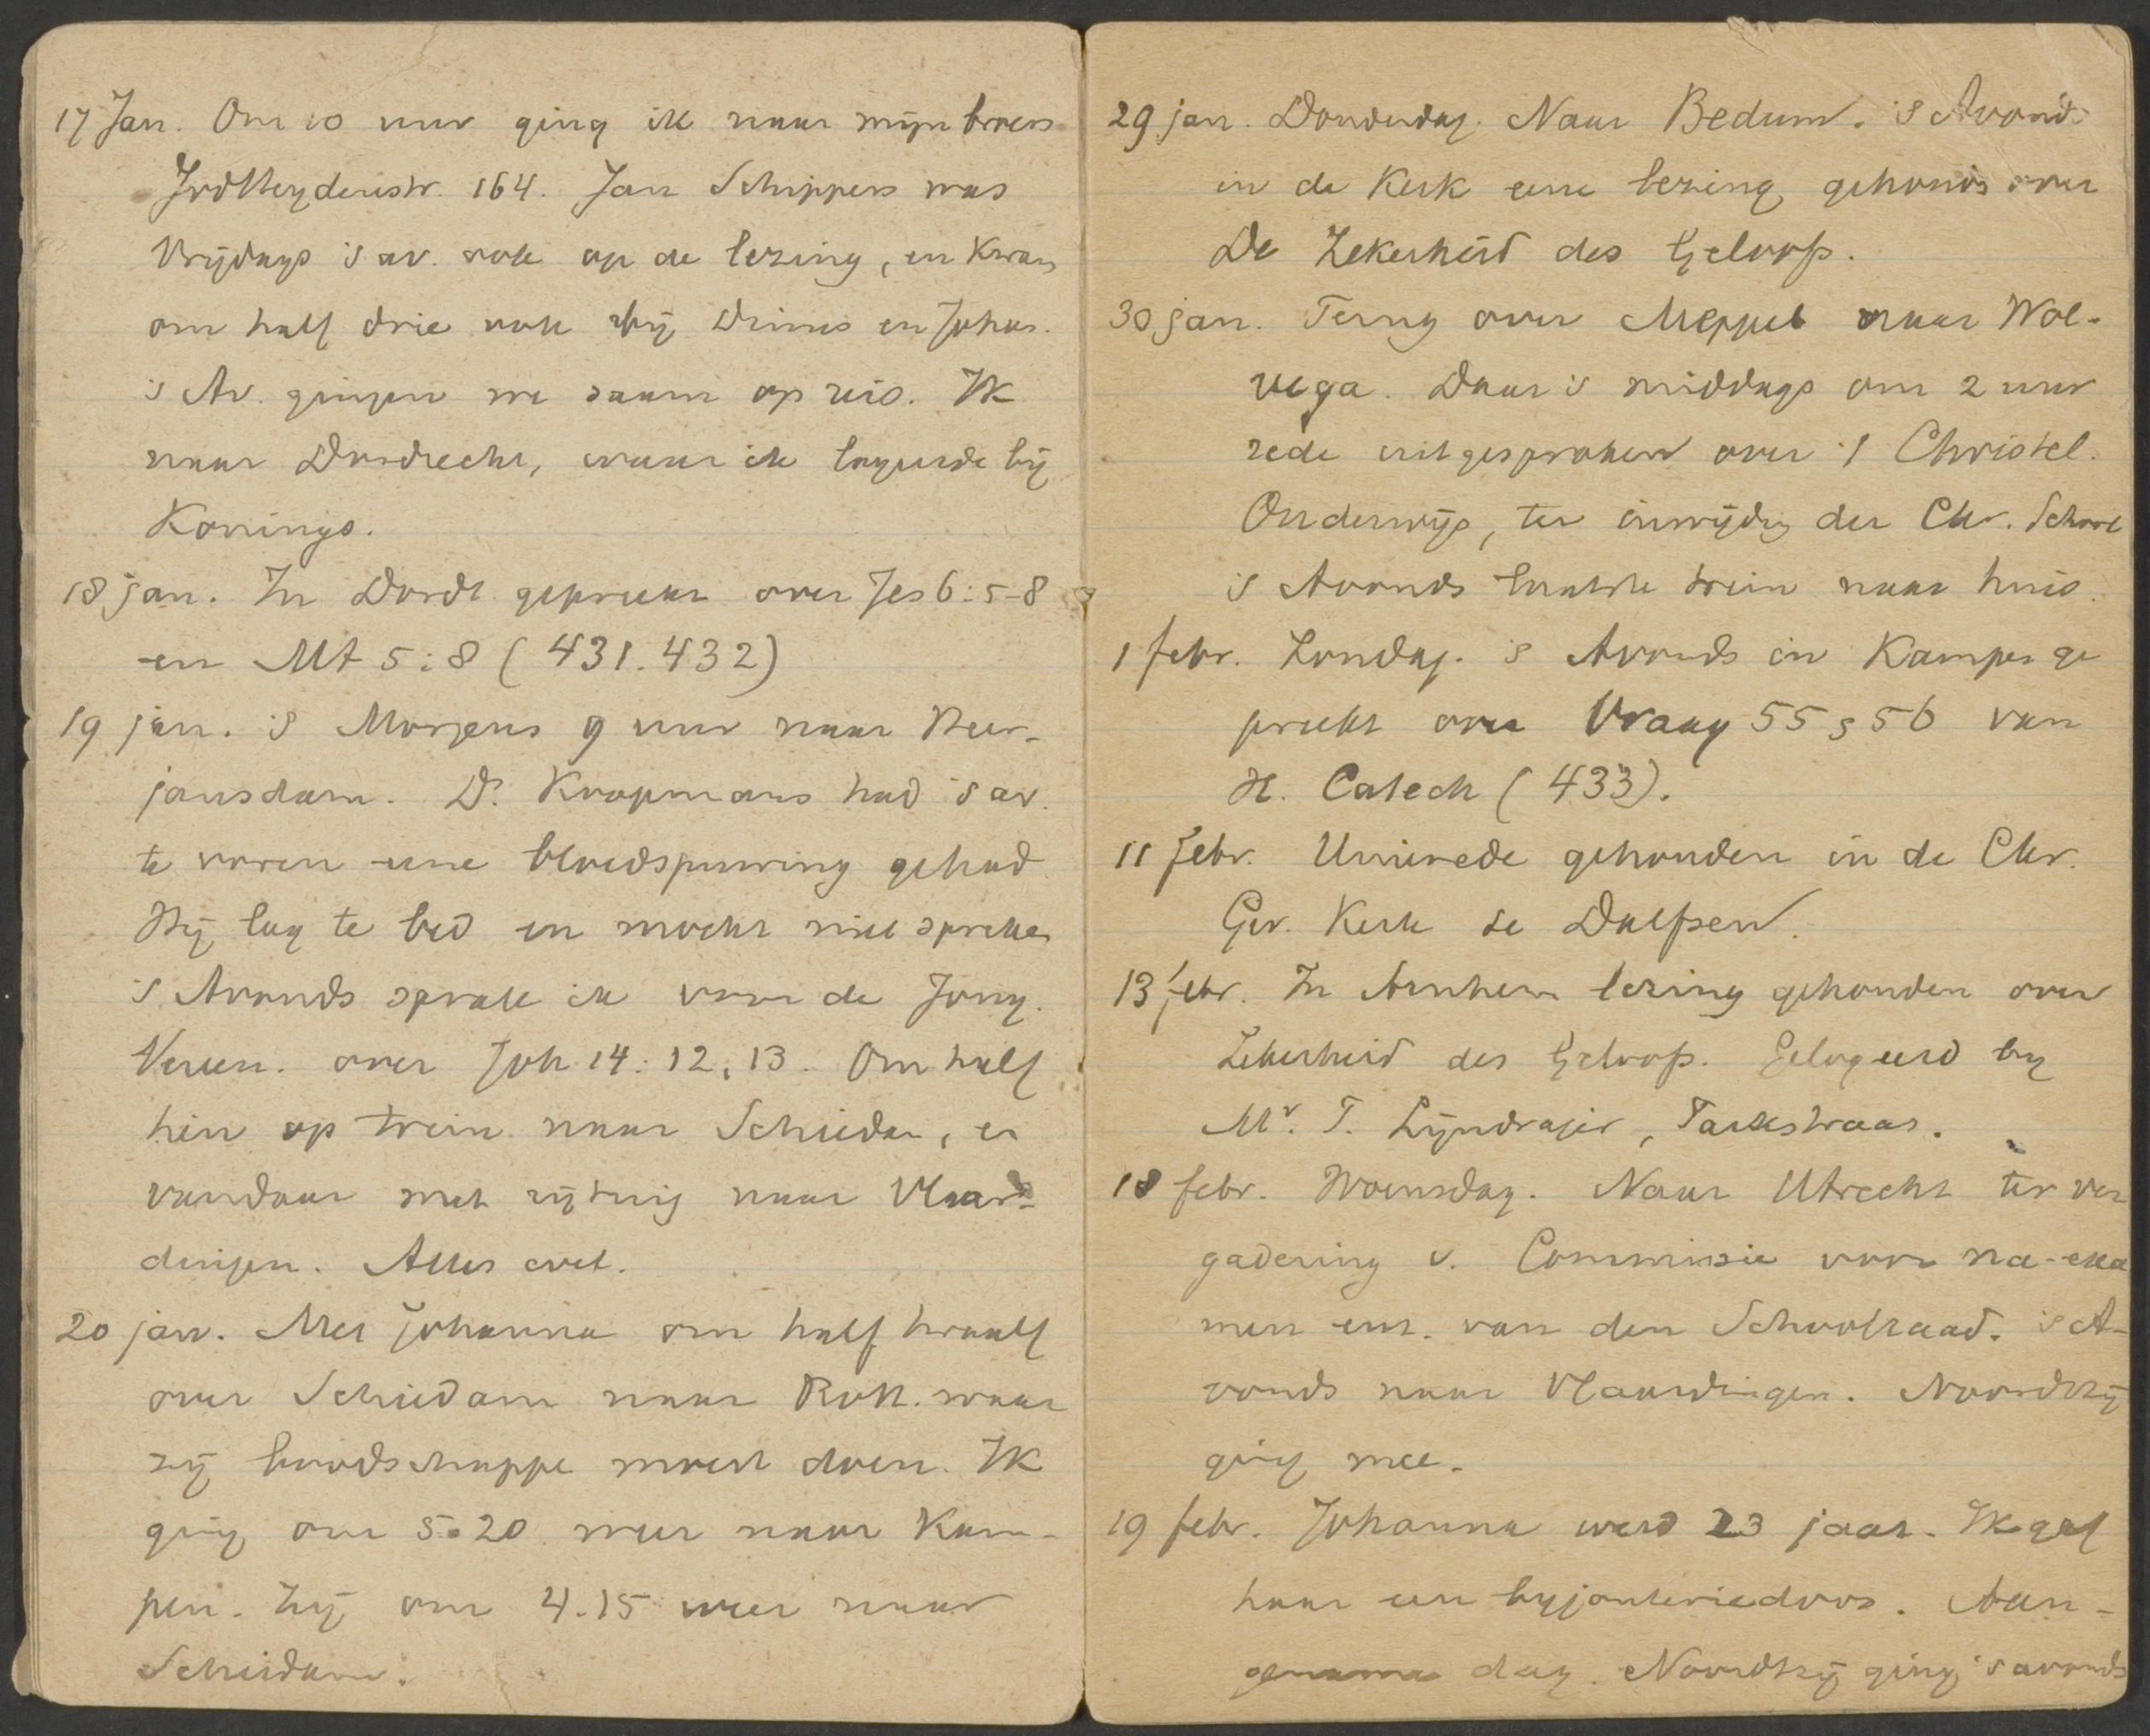 17 Jan. Om 10 uur ging ik naar mijn broers
Jodheydenstr. 164. Jan Schippers was
Vrijdags 's av. ook op de lezing, en kwam
om half drie ook bij Dinus en Johan.
's Av. gingen we saam op reis. Ik
naar Dordrecht, waar ik logeerde bij
Konings.
18 jan. In Dordt gepreekt over Jes 6:5-8
en Mt 5:8 (431.432)
19 jan. 's Morgens 9 uur naar Heer-
jansdam. Ds. Koopmans had 's av.
te voren eene bloedspuwing gehad
Hij lag te bed en mocht niet spreken
's Avonds sprak ik voor de Jong.
Vereen. over Joh 14:12,13. Om half
tien op trein naar Schiedam, en
vandaar met rijtuig naar Vlaar-
dingen. Alles wel.
20 jan. Met Johanna om half twaalf
over Schiedam naar Rott. waar
zij boodschappe moest doen. Ik
ging om 5.20 weer naar Kam-
pen. Zij om 4.15 weer naar
Schiedam.
29 jan. Donderdag. Naar Bedum. 's Avonds
in de Kerk eene lezing gehouden over
De Zekerheid des Geloofs.
30 jan. Terug over Meppel naar Wol-
vega. Daar 's middags om 2 uur
rede uitgesproken over 't Christel.
Onderwijs, ter inwijding der Chr. School
's Avonds laatste trein naar huis.
1 febr. Zondag. 's Avonds in Kampen ge
preekt over Vraag 55 & 56 van
H. Catech (433).
11 febr. Unierede gehouden in de Chr.
Ger. Kerk te Dalfsen.
13 febr. In Arnhem lezing gehouden over
Zekerheid des Geloofs. Gelogeerd by
Mr. T. Lijndrajer, Parkstraat.
18 febr. Woensdag. Naar Utrecht ter ver
gadering v. Commissie voor na-exa
men enz. van den Schoolraad. 's A-
vonds naar Vlaardingen. Noordtzij
ging mee.
19 febr. Johanna werd 23 jaar. Ik gaf
haar een byjouteriedoos. Aan-
gename dag. Noordtzij ging 's avonds